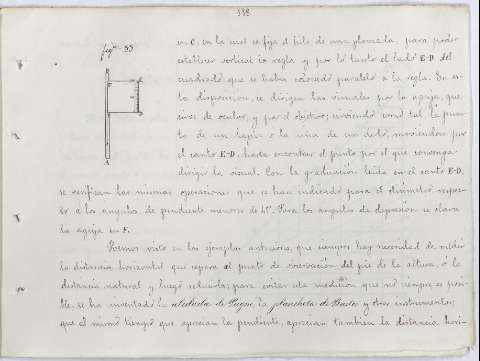 338
figª 33
en C, en la cual se fija el hilo de una plomada, para poder
establecer vertical la regla y por lo tanto el lado E-D del
cuadrado que se habra colocado paralelo a la regla. En es-
ta disposicion, se dirigen las visuales por la aguja, que
sirve de ocular, y por el objetivo; sirviendo como tal la pun-
ta de un lapiz o la uña de un dedo, moviendose por
el canto E-D, hasta encontrar el punto por el que convenga
dirigir la visual. Con la graduacion leida en el canto E-D,
se verifican las mismas operaciones que se han indicado para el clisimetro respec-
to a los angulos de pendiente menores de 45º. Para los angulos de depresion se clava
la aguja en F.
Hemos visto en los ejemplos anteriores, que siempre hay necesidad de medir
la distancia horizontal que separa el punto de observacion del pie de la altura, ó la
distancia natural y luego reducirla; para evitar esta medicion que no siempre es posi-
ble, se ha inventado la alidada de Puyou, la plancheta de y otros instrumentos,
que al mismo tiempo que aprecian la pendiente, aprecian tambien la distancia hori-
A